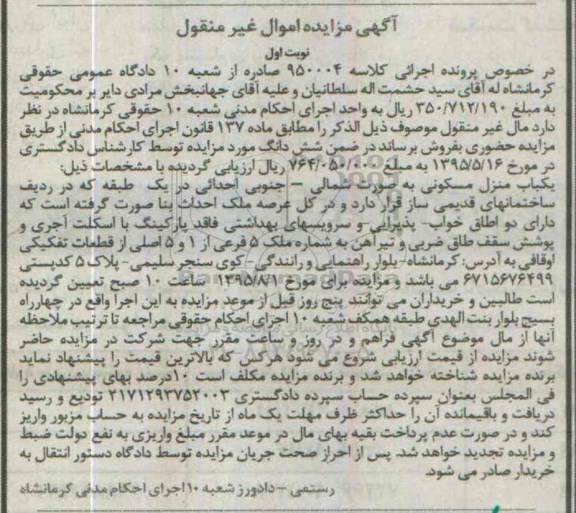 آگهی مزایده اموال غیر منقول
نوبت اول
در خصوص پرونده اجرائی کلاسه ۹۵۰۰۰۴ صادره از شعبه ۱۰ دادگاه عمومی حقوقی
کرمانشاه له آقای سید حشمت اله سلطانیان و علیه آقای جهانبخش مرادی دایر بر محکومیت
به مبلغ ۳۵۰/۷۱۲/۱۹۰ ریال به واحد اجرای احکام مدنی شعبه ۱۰ حقوقی کرمانشاه در نظر
دارد مال غیر منقول موصوف ذیل الذکر را مطابق ماده ۱۳۷ قانون اجرای احکام مدنی از طریق
مزایده حضوری بفروش برساند در ضمن شش دانگ مورد مزایده توسط کارشناس دادگستری
در مورخ ۱۳۹۵/۵/۱۶ به مبلغ ریال ارزیابی گردیده با مشخصات ذیل:
یکباب منزل مسکونی به صورت شمالی – جنوبی احداثی در یک طبقه که در ردیف
ساختمانهای قدیمی ساز قرار دارد و در کل عرصه ملک احداث بنا صورت گرفته است که
دارای دو اطاق خواب– پذیرایی و سرویسهای بهداشتی فاقد پارکینگ با اسکلت آجری و
پوشش سقف طاق ضربی و تیرآهن به شماره ملک ۵ فرعی از ۱ و ۵ اصلی از قطعات تفکیکی
اوقافی به آدرس: کرمانشاه– بلوار راهنمایی و رانندگی – کوی سنجر سلیمی – پلاک ۵ کدپستی
۶۷۱۵۶۷۶۴۹۹ می باشد و مزایده برای مورخ ۱۳۹۵/۸/۱ ساعت ۱۰ صبح تعیین گردیده
است طالبین و خریداران می توانند پنج روز قبل از موعد مزایده به این اجرا واقع در چهارراه
بسیج بلوار بنت الهدی طبقه همکف شعبه ۱۰ اجرای احکام حقوقی مراجعه تا ترتیب ملاحظه
آنها از مال موضوع آگهی فراهم و در روز و ساعت مقرر جهت شرکت در مزایده حاضر
شوند مزایده از قیمت ارزیابی شروع می شود هرکس که بالاترین قیمت را پیشنهاد نماید
برنده مزایده شناخته خواهد شد و برنده مزایده مکلف است ۱۰درصد بهای پیشنهادی را
فی المجلس بعنوان سپرده حساب سپرده دادگستری ۲۱۷۱۲۹۳۷۵۲۰۰۳ تودیع و رسید
دریافت و باقیمانده آن را حداکثر ظرف مهلت یک ماه از تاریخ مزایده به حساب مزبور واریز
کند و در صورت عدم پرداخت بقیه بهای مال در موعد مقرر مبلغ واریزی به نفع دولت ضبط
و مزایده تجدید خواهد شد. پس از احراز صحت جریان مزایده توسط دادگاه دستور انتقال به
خریدار صادر می شود.
رستمی – دادورز شعبه ۱۰ اجرای احکام مدنی کرمانشاه